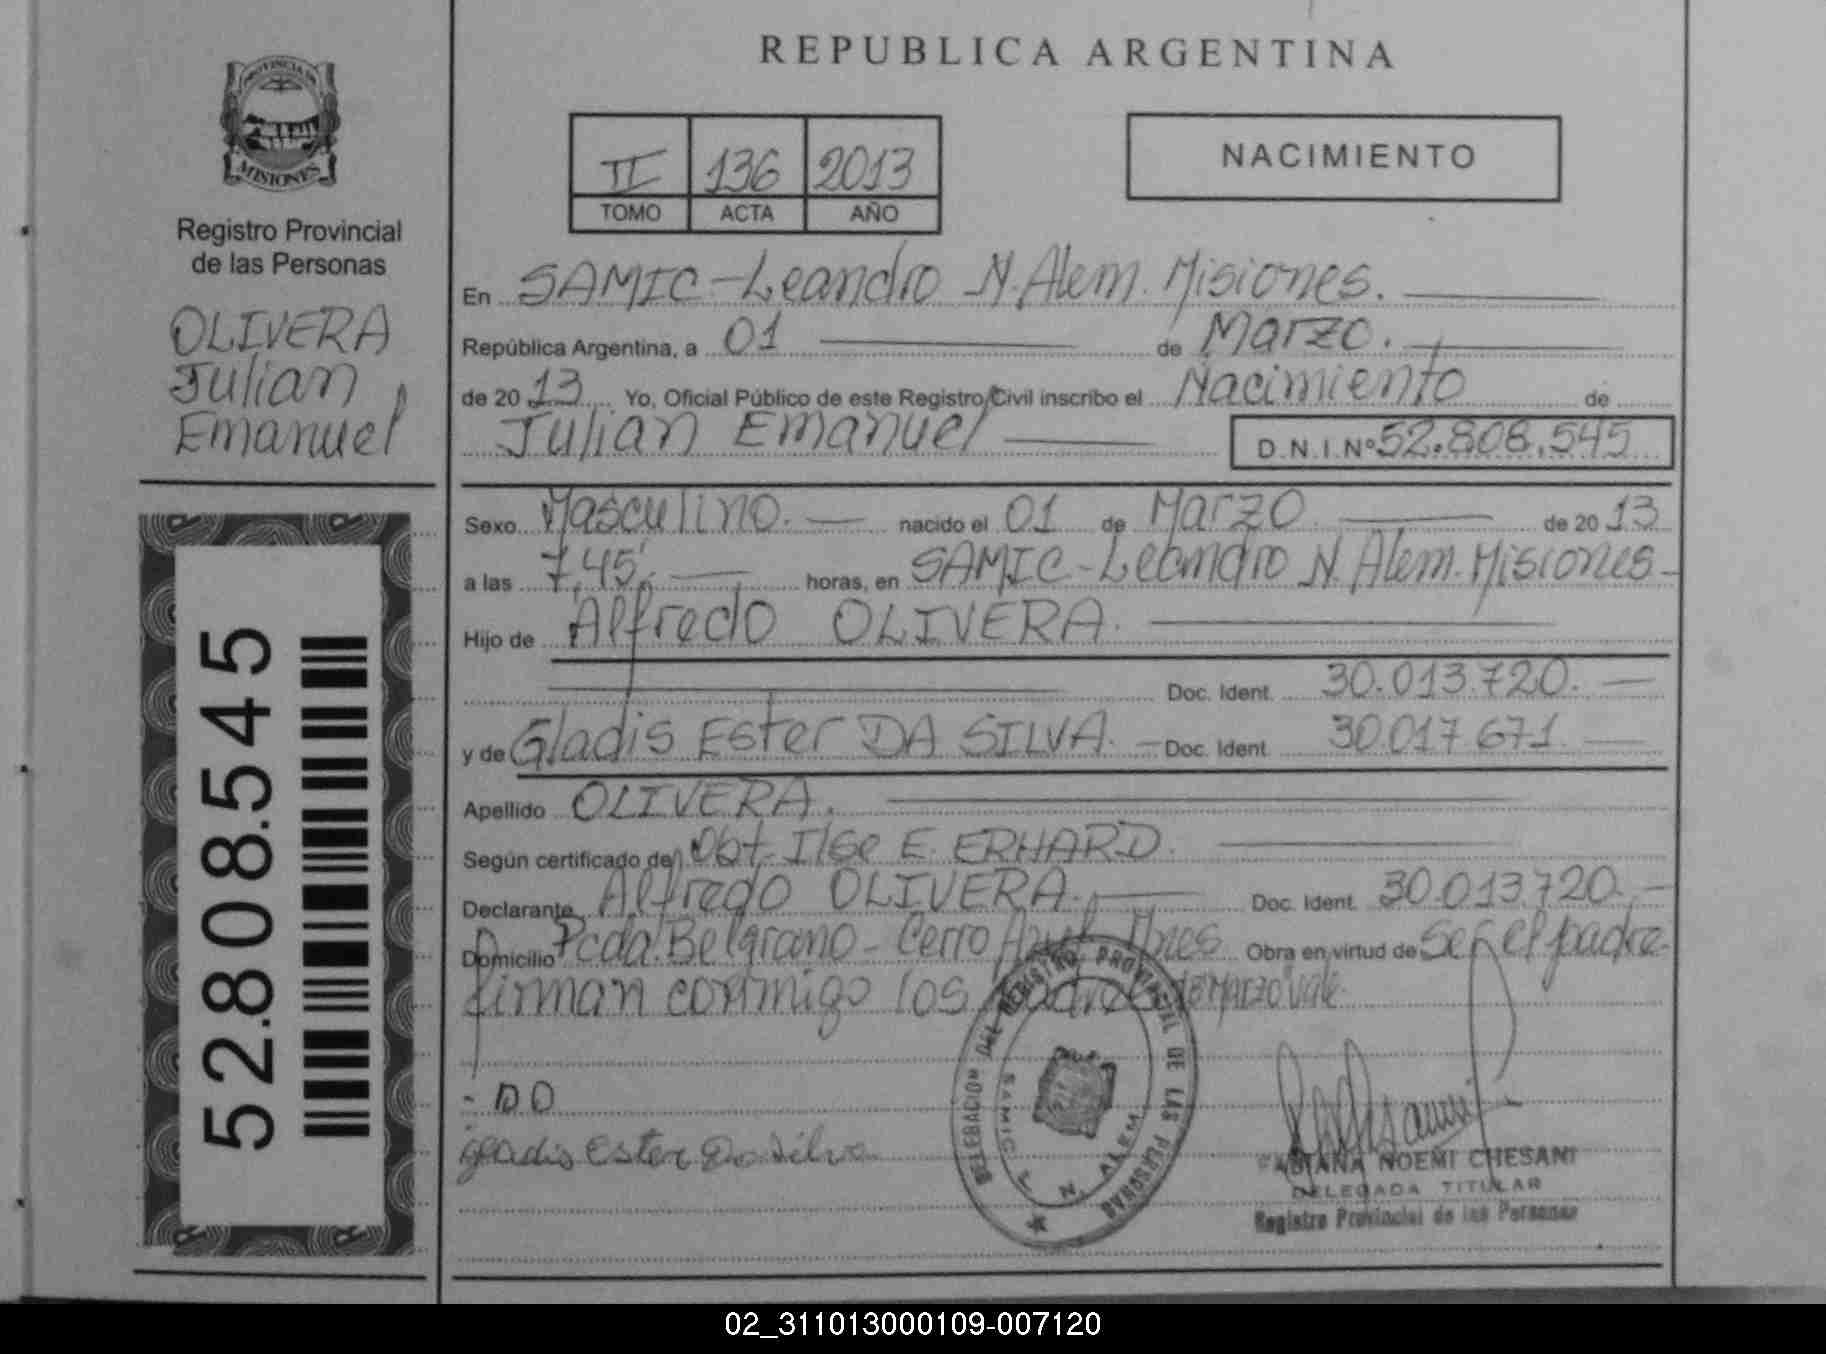 REPUBLICA ARGENTINA
PROVINCIA DE
MISIONES
Registro Provincial
de las Personas
OLIVERA
Julian
Emanuel
52.808.545
II 136 2013
TOMO ACTA AÑO
NACIMIENTO
En SAMIC - Leandro N. Alem. Misiones.
República Argentina, a 01 de Marzo.
de 2013 Yo, Oficial Público de este Registro Civil inscribo el Nacimiento de
Julian Emanuel D.N.I.Nº 52.808.545
Sexo Masculino. nacido el 01 de Marzo de 2013
a las 7,45'. horas, en SAMIC - Leandro N. Alem. Misiones
Hijo de Alfredo OLIVERA.
Doc. Ident. 30.013.720.
y de Gladis Ester DA SILVA. Doc. Ident. 30.017.671.
Apellido OLIVERA.
Según certificado de Obt. Ilse E. ERHARD.
Declarante Alfredo OLIVERA. Doc. Ident. 30.013.720.
Domicilio Pcda. Belgrano - Cerro Azul. Mnes Obra en virtud de Ser el padre
firman conmigo los padres Marzo Vale
DO
gladis Ester Da silva
DELEGACION DEL REGISTRO PROVINCIAL DE LAS PERSONAS
SAMIC L. N. ALEM
FABIANA NOEMI CHESANI
DELEGADA TITULAR
Registro Provincial de las Personas
02_311013000109-007120